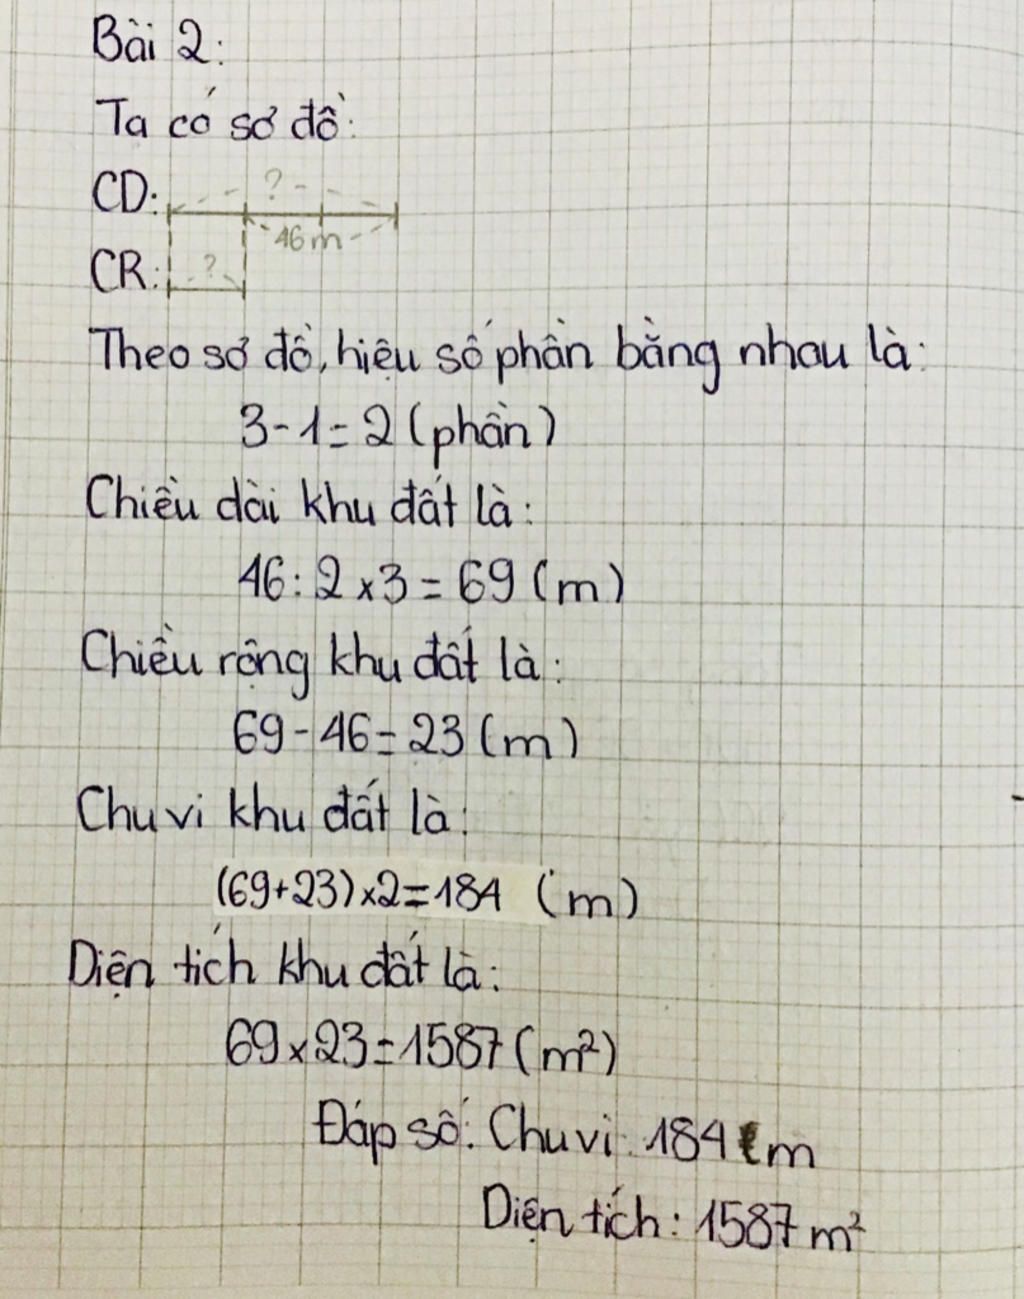 Bài 2:
Ta có sơ đồ:
CD: ?
46 m
CR: ?
Theo sơ đồ, hiệu số phần bằng nhau là:
3-1=2 (phần)
Chiều dài khu đất là:
46:2x3=69 (m)
Chiều rộng khu đất là:
69-46=23 (m)
Chu vi khu đất là:
(69+23)x2=184 (m)
Diện tích khu đất là:
69x23=1587 (m²)
Đáp số: Chu vi: 184 m
Diện tích: 1587 m²